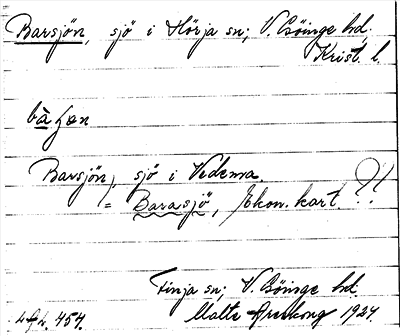 Barsjön, sjö i Hörja sn; V. Göinge hd.
Krist. l.
Barsjön, sjö i Vedema.
= Barasjö, Ekon. kart. ?!
Finja sn; V. Göinge hd
Malte 1927.
454.